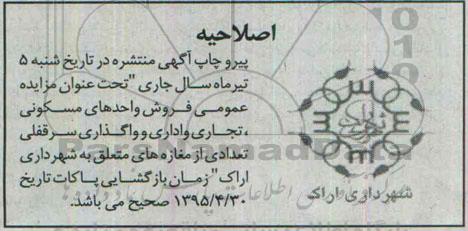 اصلاحیه
پیرو چاپ آگهی منتشره در تاریخ شنبه ۵
تیرماه سال جاری "تحت عنوان مزایده
عمومی فروش واحدهای مسکونی
، تجاری و اداری و واگذاری سرقفلی
تعدادی از مغازه های متعلق به شهرداری
اراک" زمان بازگشایی پاکات تاریخ
۱۳۹۵/۴/۳۰ صحیح می باشد.
شهرداری اراک
ParsNamadData